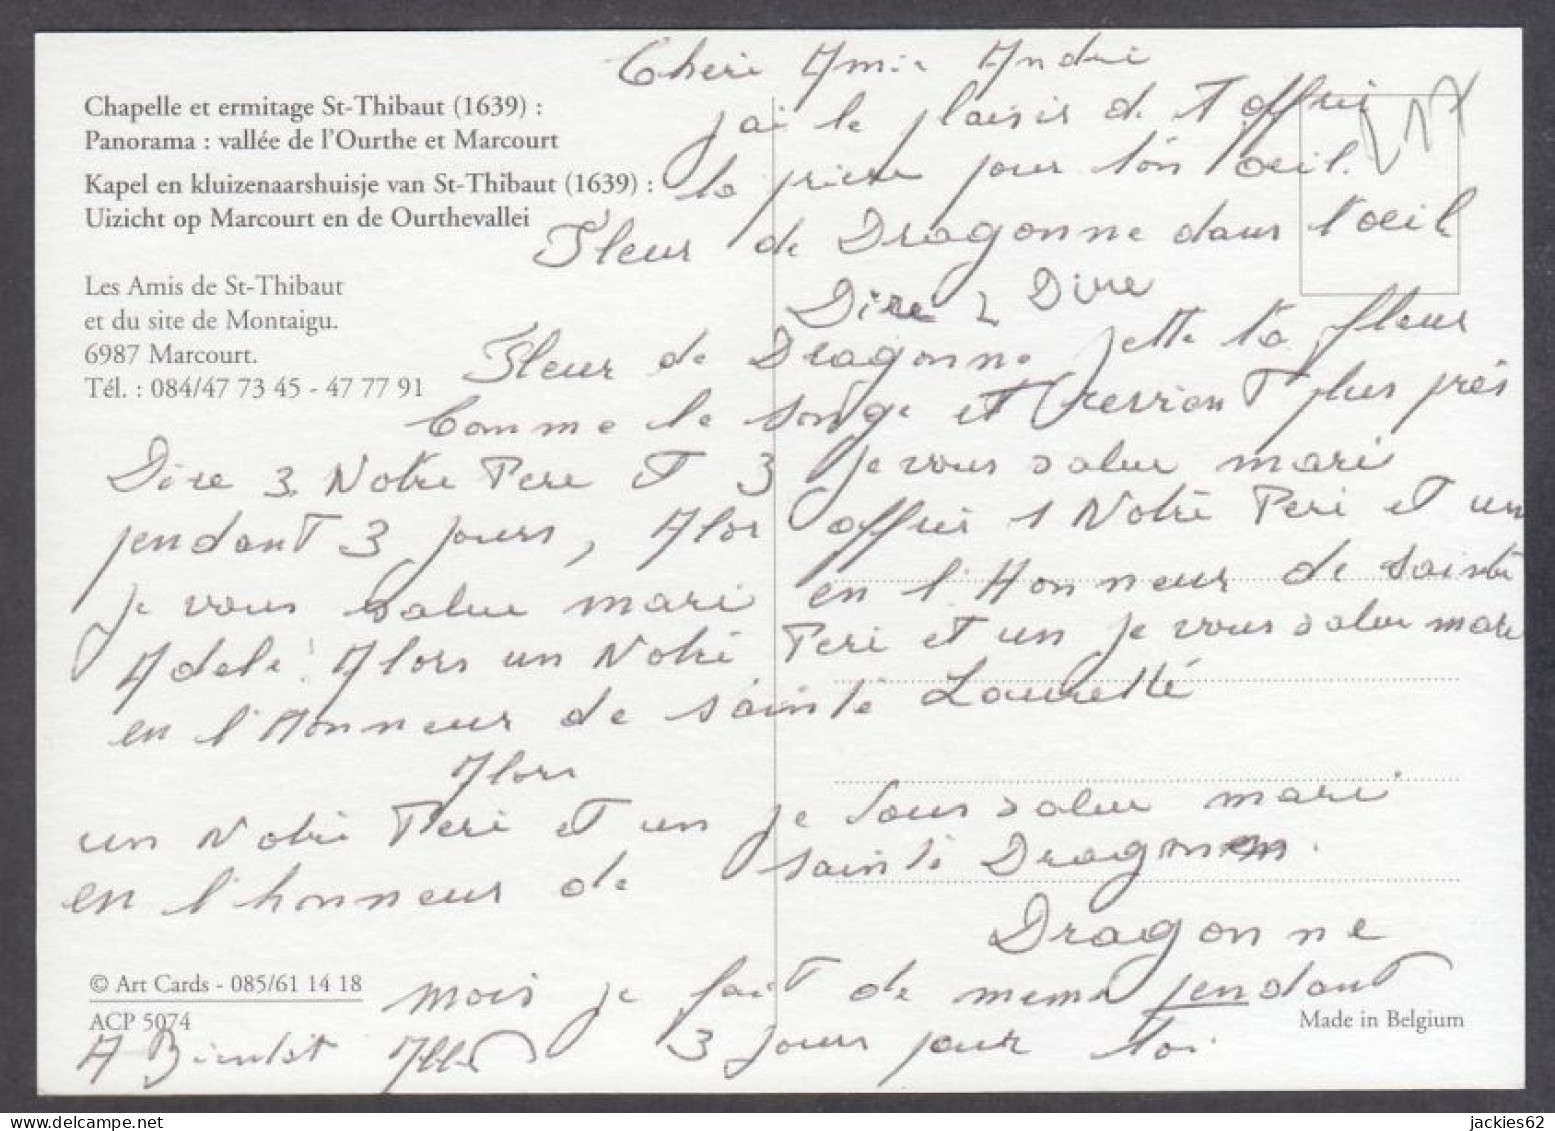 Chapelle et ermitage St-Thibaut (1639) :
Panorama : vallée de l'Ourthe et Marcourt
Kapel en kluizenaarshuisje van St-Thibaut (1639) :
Uizicht op Marcourt en de Ourthevallei
Les Amis de St-Thibaut
et du site de Montaigu.
6987 Marcourt.
Tél. : 084/47 73 45 - 47 77 91
Cheri Amie Andri
jai le plaisir de t offrir
la priere pour ton oeil.
Fleur de Dragonne dans l'oeil
Dire
Fleur de Dragonne jette ta fleur
Comme le songe et revient plus près
Dire 3 Notre Pere et 3 je vous salue mari
pendant 3 jours, Alor offrir 1 Notre Peri et un
je vous salue mari en l'Honneur de sainte
Adele! Alors un Notre Peri et un je vous salue mari
en l'Honneur de sainte Laurette
Alors
un Notre Peri et un je vous salue mari
en l'honneur de sainte
Dragonne
mois je fait de meme pendant
3 jours pour toi
A Bientot
© Art Cards - 085/61 14 18
ACP 5074
Made in Belgium
jackies62